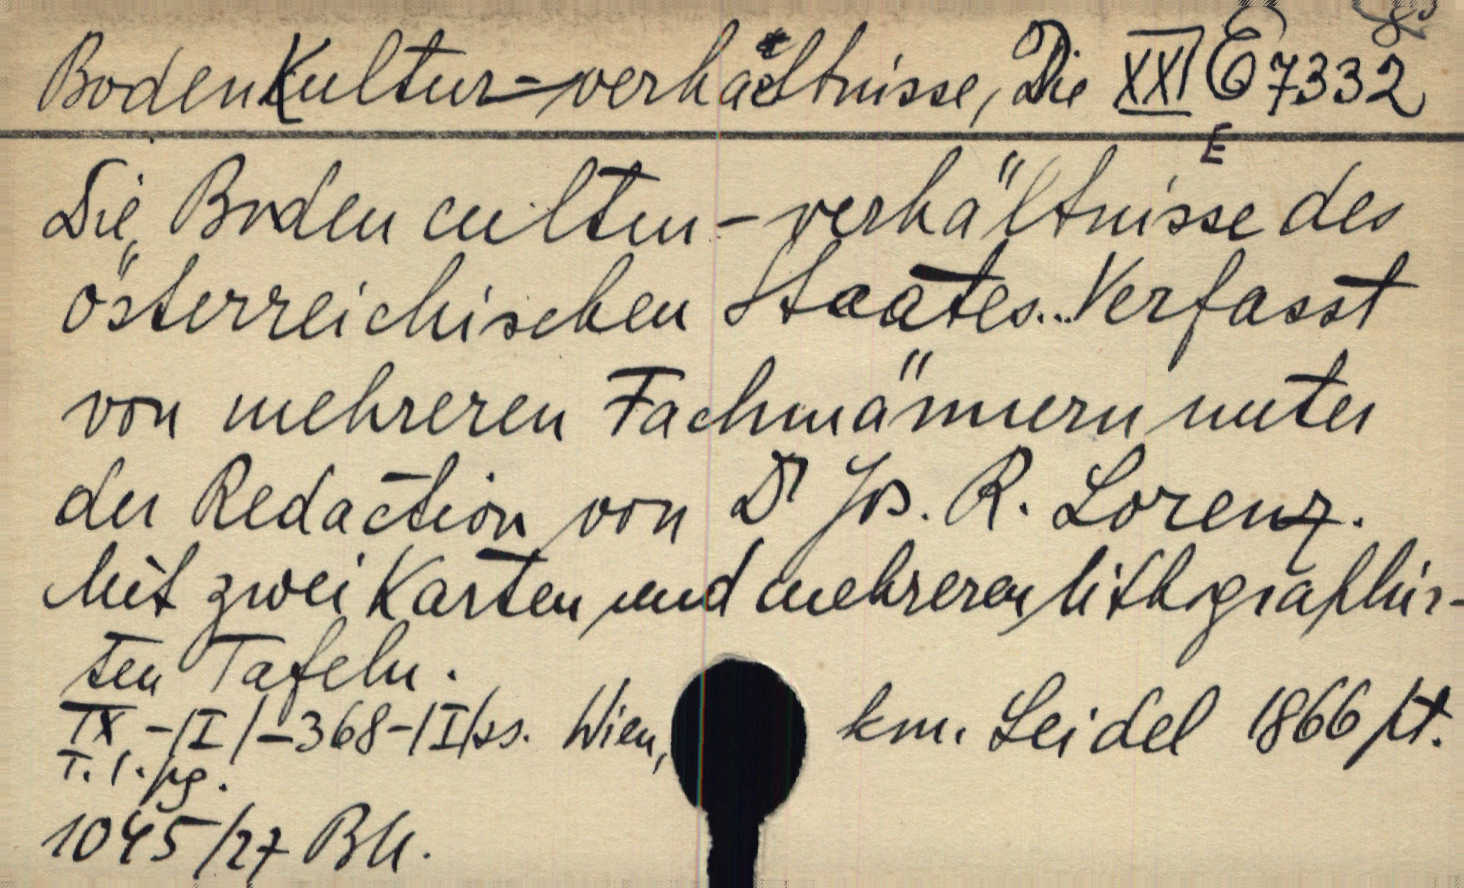 BodenKultur-verhältnisse, Die XXI E 7332
E
Die Boden cultur-verhältnisse des
österreichischen Staates... Verfasst
von mehreren Fachmännern unter
der Redaction von Dr Jos. R. Lorenz.
Mit zwei Karten und mehreren lithographir-
ten Tafeln.
IX-/I/-368-/I/ss. Wien, km. Seidel 1866 pt.
T. 1. pg.
1045/27 Bh.